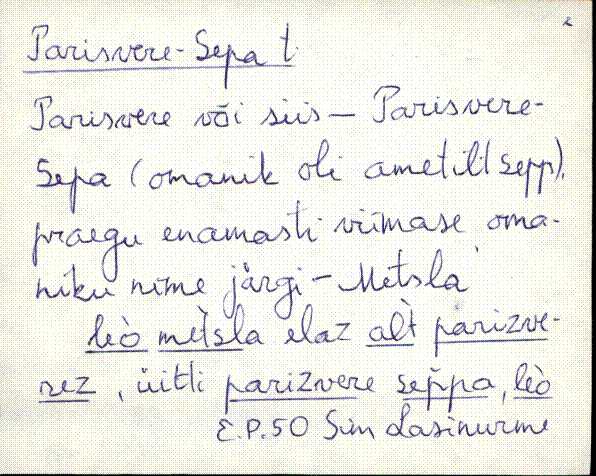 Parisvere-Sepa t.
Parisvere või siis – Parisvere-
Sepa (omanik oli ametilt sepp),
praegu enamasti viimase oma-
niku nime järgi – Metsla
lèo mètsla elaz alt̀ parizve-
rez, üitti parizvere sep̆pa, lèo
E.P.50 Sim Lasinurme